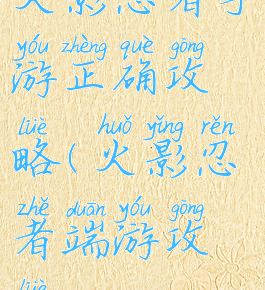 火影忍者手
yóu zhèng què gōng
游正确攻
lüè huǒ yǐng rěn
略(火影忍
zhě duān yóu gōng
者端游攻
lüè